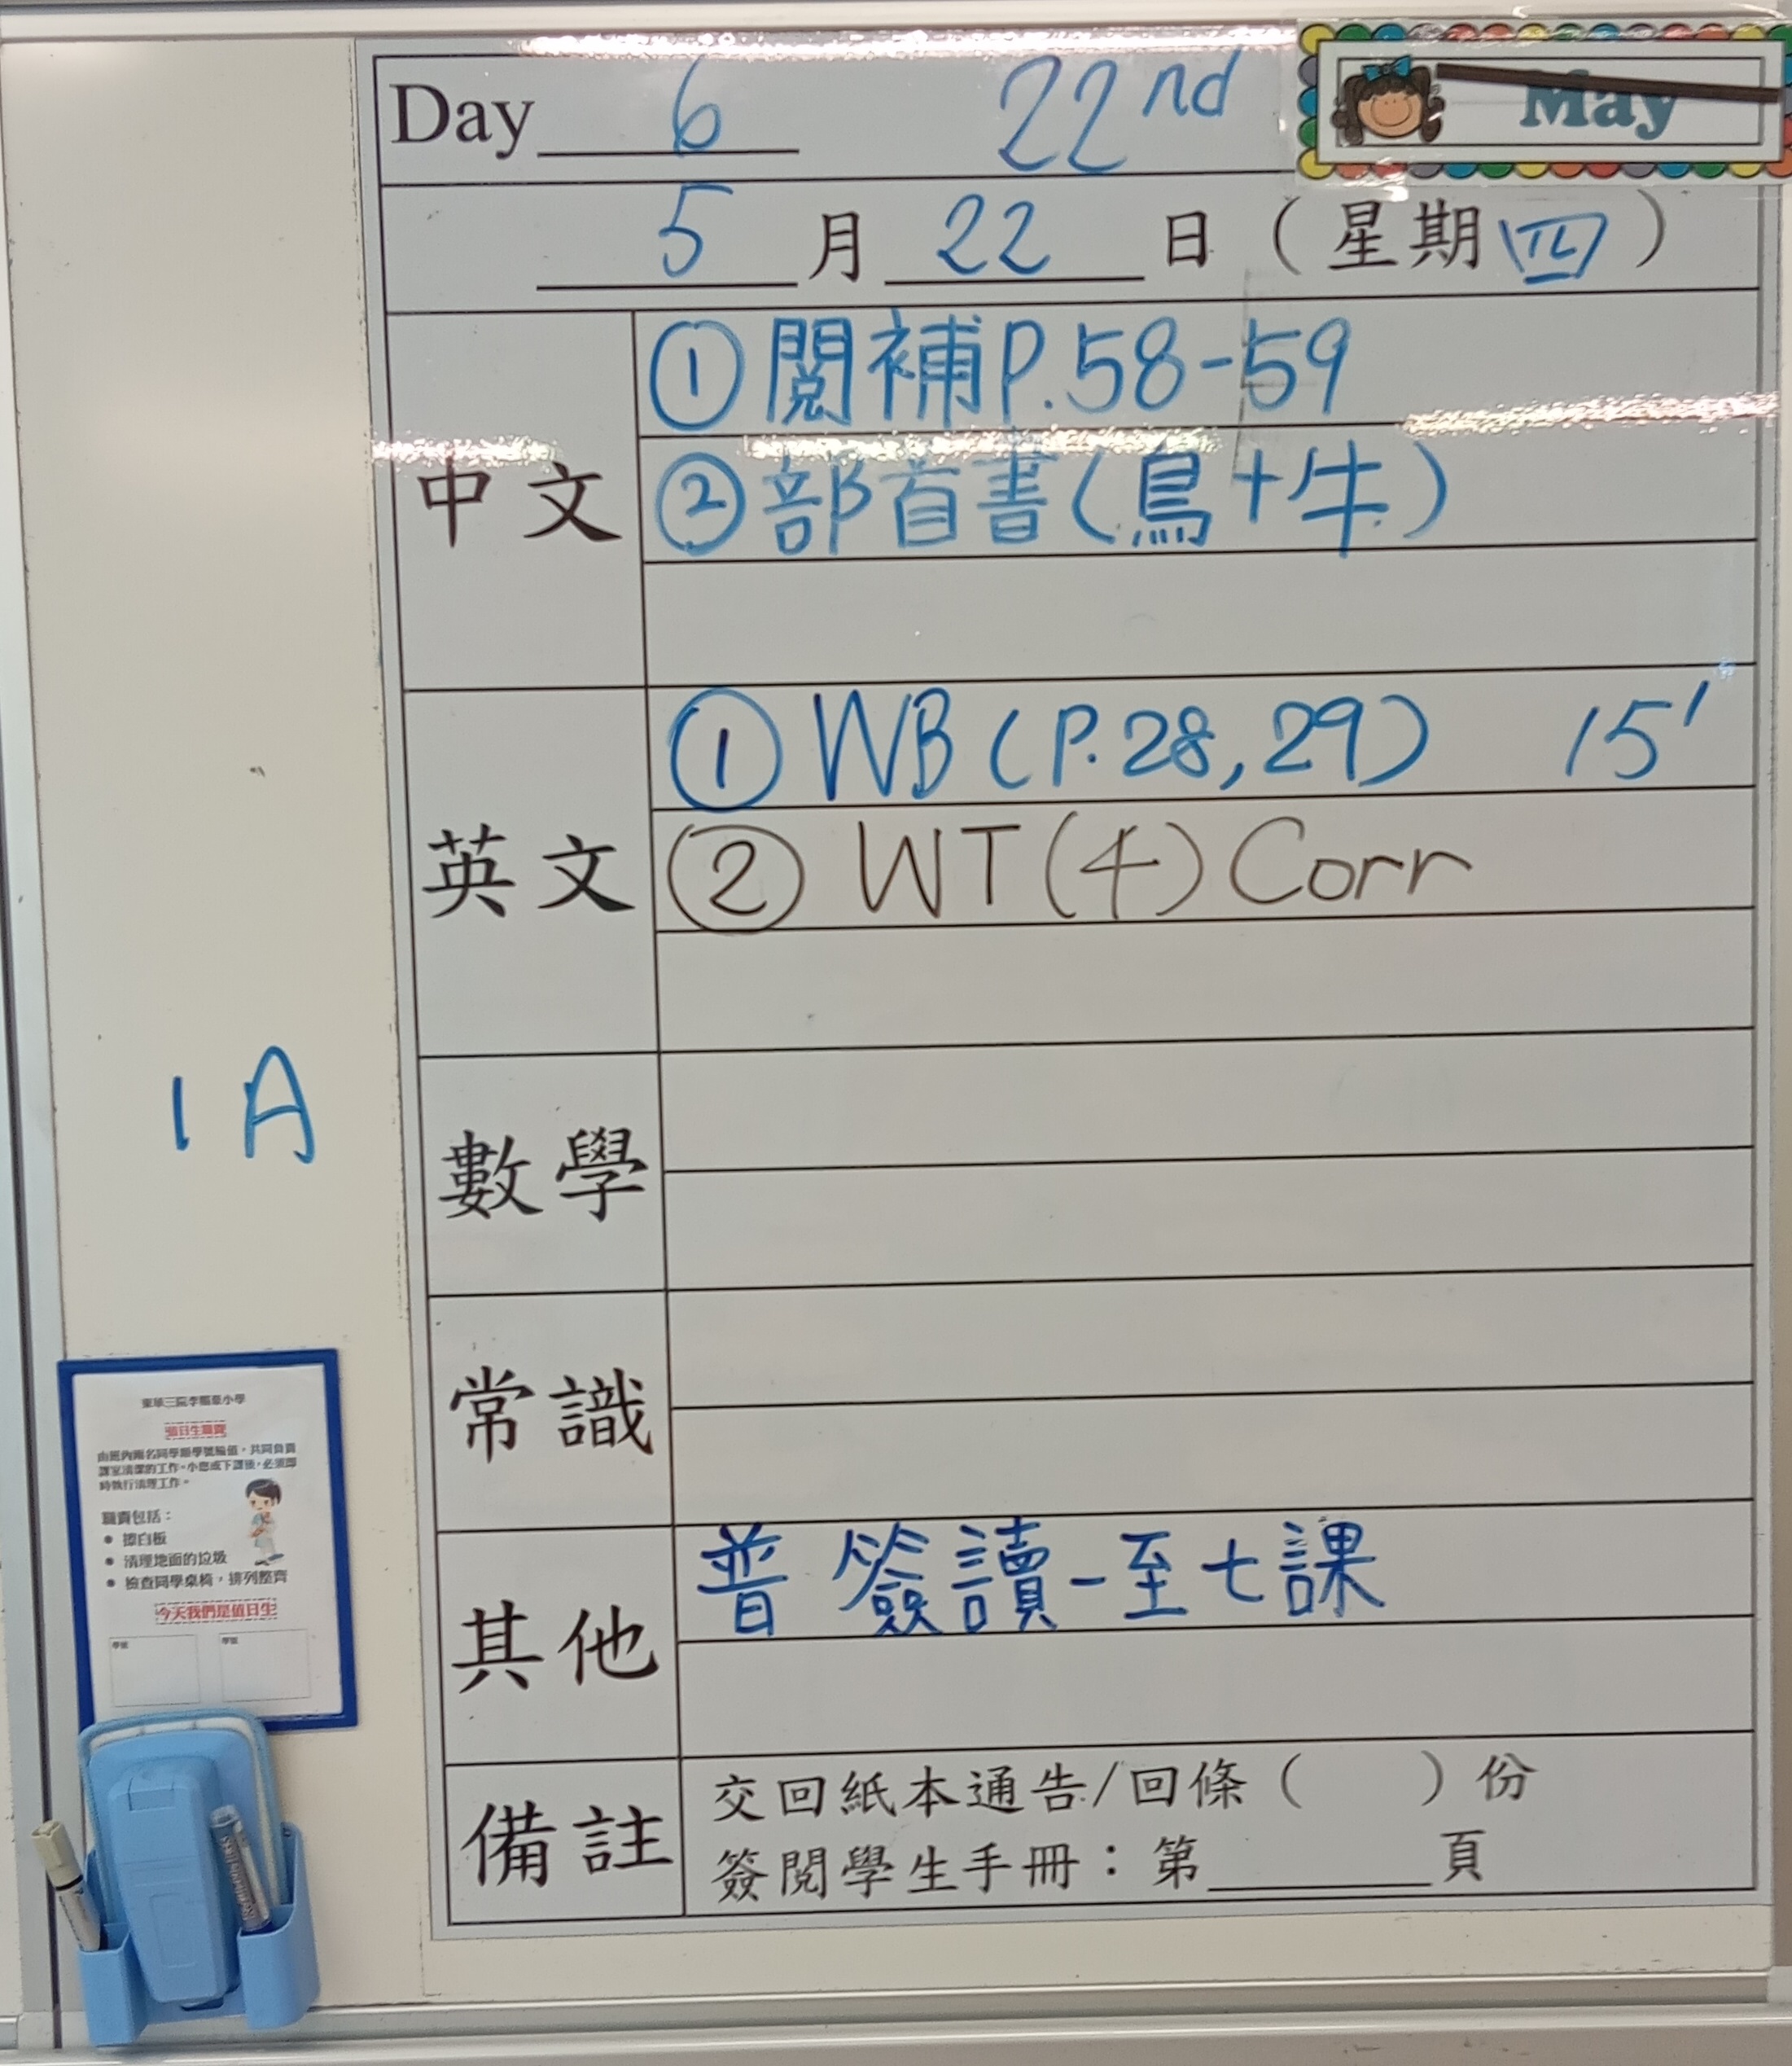 Day 6 22nd May
5 月 22 日 ( 星期 四 )
中文
① 閱補 P.58-59
② 部首書 ( 鳥 + 牛 )
英文
① WB ( P.28, 29 ) 15'
② WT (4) Corr
數學
常識
其他
普 簽讀一至七課
備註
交回紙本通告/回條 ( ) 份
簽閱學生手冊：第 頁
1A
值日生職責
由班內兩名同學順學號輪值，共同負責
課室清潔的工作。小息或下課後，必須即
時執行清理工作。
職責包括：
● 擦白板
● 清理地面的垃圾
● 檢查同學桌椅，排列整齊
今天我們是值日生
學號 學號